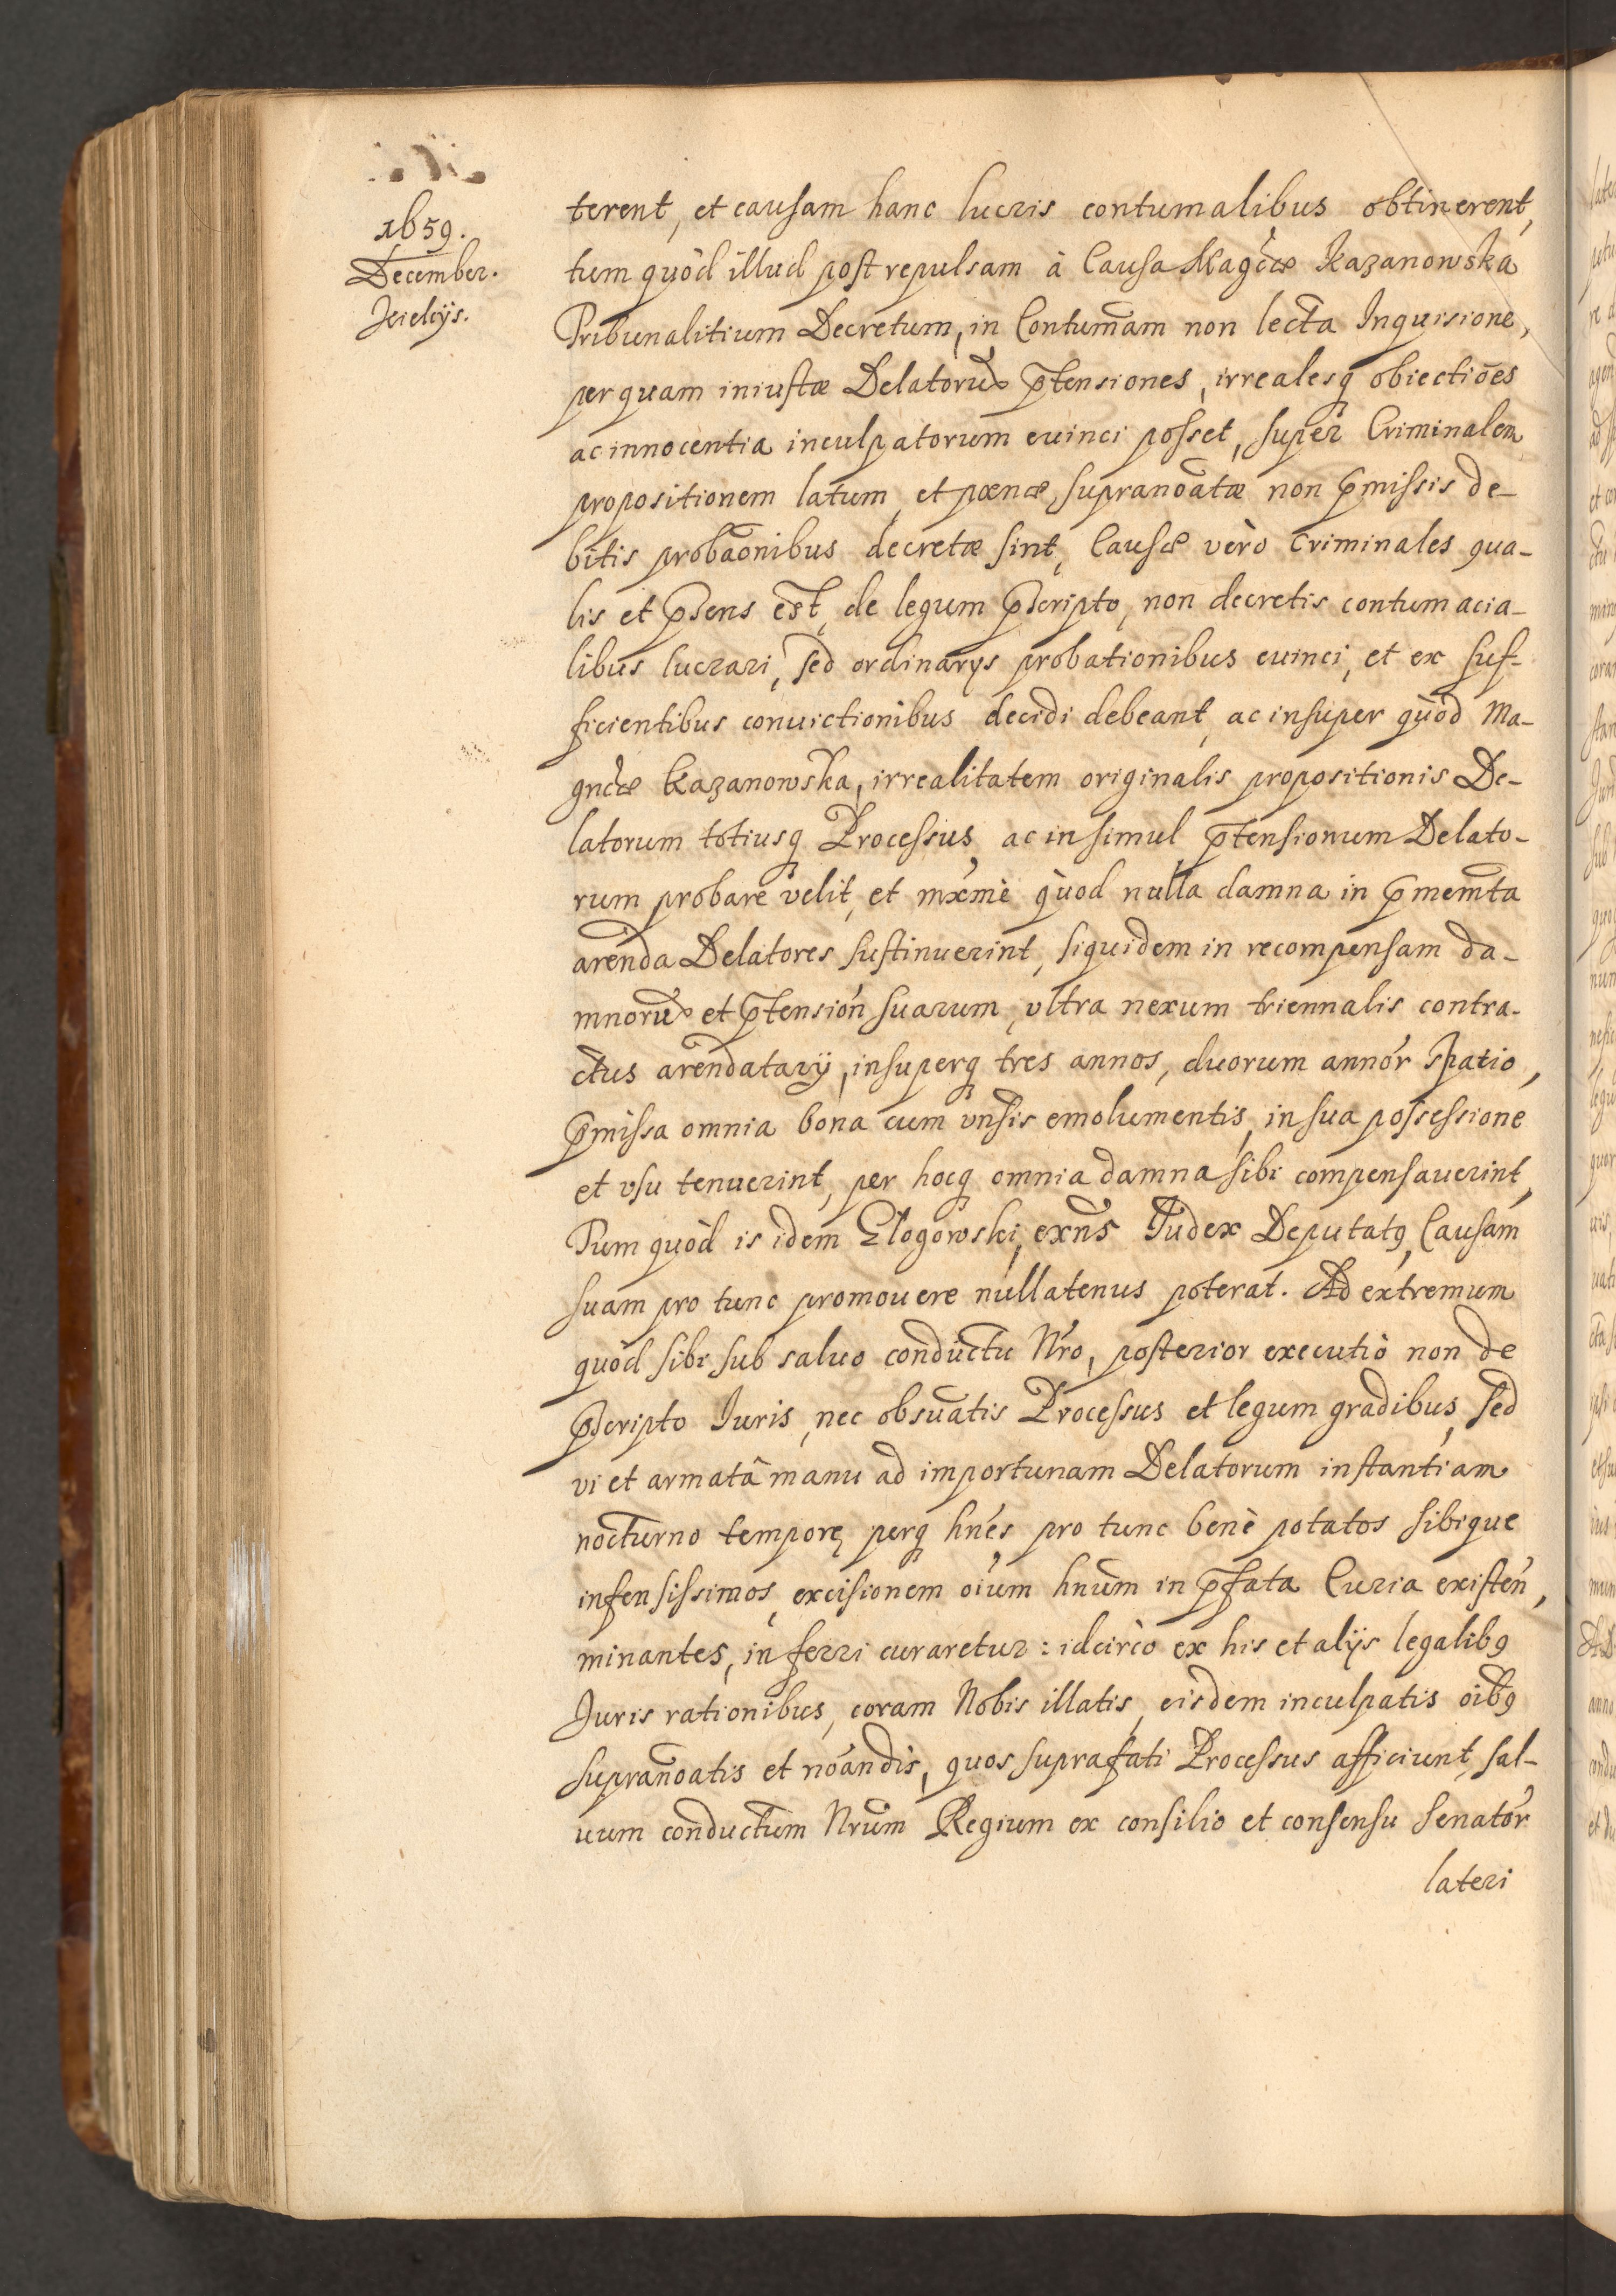 1659.
December.
terent, et causam hanc lucris contumalibus obtinerent,
tum quòd illud post repulsam à Causa Magcæ Kazanowska
Tribunalitium Decretum, in Contumam non lecta Inquisione,
per quam iniustæ Delatorũ p̃tensiones, irrealesq obiectiões
ac innocentia inculpatorum euinci posset, super Criminalem
propositionem latum, et poenæ supranoãtæ non p̃missis de-
bitis probãonibus decretæ sint, Causæ vèrò Criminales qua-
lis et p̃sens est, de legum p̃scripto, non decretis contumacia-
libus lucrari, sed ordinarys probationibus euinci, et ex suf-
ficientibus conuictionibus decidi debeant, ac insuper quòd Ma-
gncæ Kazanowska, irrealitatem originalis propositionis De-
latorum totiusq Processus, ac insimul p̃tensionum Delato-
rum probare velit, et mxmè quòd nulla damna in p̃memta
arenda Delatores sustinuerint, siquidem in recompensam da-
mnorũ et p̃tensión suarum, vltra nexum triennalis contra-
ctus arendatarÿ, insuperq tres annos, duorum annór spatio,
p̃missa omnia bona cum vnsis emolumentis, in sua possessione
et vsu tenuerint, per hocq omnia damna sibi compensauerint,
Tum quòd is idem Głogowski, exñs Iudex Deputatꝯ, Causam
suam pro tunc promouere nullatenus poterat. Ad extremum
quòd sibi sub saluo conductu Nro, posterior executiò non de
p̃scripto Iuris, nec obsuatis Processus et legum gradibus, sed
vi et armatâ manu ad importunam Delatorum instantiam
nocturno tempore, perq hnes pro tunc benè potatos sibique
infensissimos, excisionem oium hnum in p̃fata Curia existen,
minantes, in ferri curaretur: idcirco ex his et alÿs legalibꝯ
Iuris rationibus, coram Nobis illatis, eisdem inculpatis oibꝯ
supranõatis et nõandis, quos suprafati Processus afficiunt, sal-
uum conductum Nrum Regium ex consilio et consensu Senatór
lateri